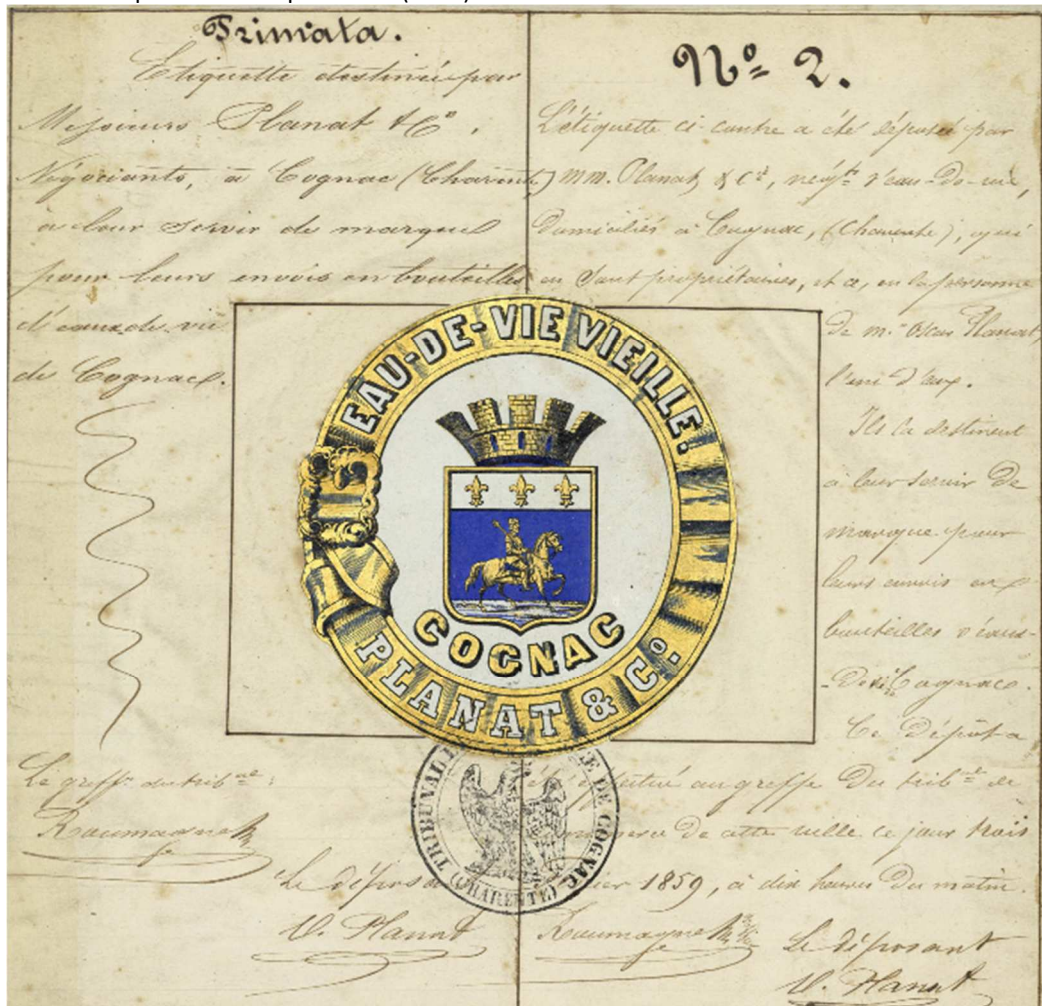 Primata.
Etiquette destinée par
Messieurs Planat & Cⁱᵉ,
Négociants, à Cognac (Charente)
à leur servir de marque
pour leurs envois en bouteilles
d'eaux de vie
de Cognac.
Le greff. du trib.ᵃˡ:
Le dépos
O. Planat
Nº 2.
L'étiquette ci-contre a été déposée par
MM. Planat & Cⁱᵉ, négᵗˢ d'eau-de-vie,
domiciliés à Cognac, (Charente), qui
en sont propriétaires, et ce, en la personne
de M. Oscar Planat,
l'un d'eux.
Ils la destinent
à leur servir de
marque pour
leurs envois en
bouteilles d'eaux-
de-vie Cognac.
Ce dépôt a
été effectué au greffe du tribᵃˡ de
commerce de cette ville ce jour trois
1859, à dix heures du matin.
Le déposant
O. Planat
EAU-DE-VIE VIEILLE.
COGNAC
PLANAT & Cº.
TRIBUNAL DE COGNAC
(CHARENTE)